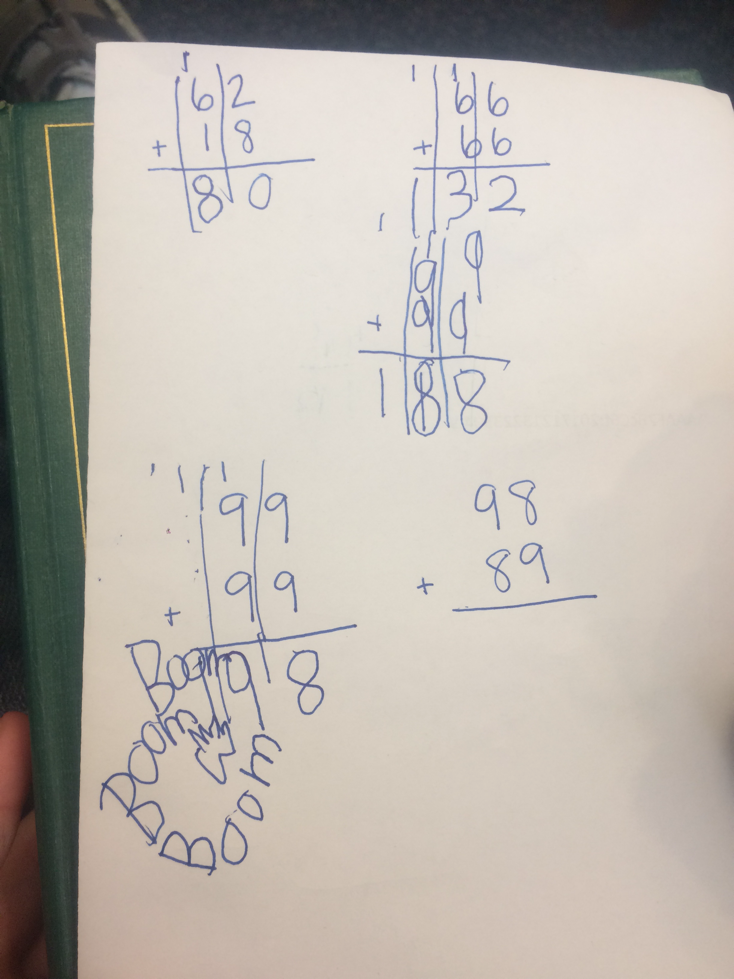 1
62
+ 18
80
1 1
66
+ 66
132
1 1
99
+ 99
188
1 1
99
+ 99
98
Boom
Boom
Boom
98
+ 89